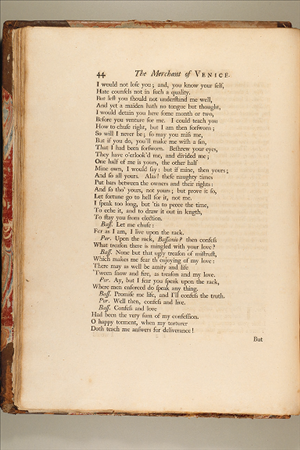 44 The Merchant of VENICE.
I would not lose you; and, you know your self,
Hate counsels not in such a quality.
But lest you should not understand me well,
And yet a maiden hath no tongue but thought,
I would detain you here some month or two,
Before you venture for me. I could teach you
How to chuse right, but I am then forsworn;
So will I never be; so may you miss me,
But if you do, you'll make me wish a sin,
That I had been forsworn. Beshrew your eyes,
They have o'erlook'd me, and divided me;
One half of me is yours, the other half
Mine own, I would say: but if mine, then yours;
And so all yours. Alas! these naughty times
Put bars between the owners and their rights:
And so tho' yours, not yours; but prove it so,
Let fortune go to hell for it, not me.
I speak too long, but 'tis to peece the time,
To eche it, and to draw it out in length,
To stay you from election.
Bass. Let me chuse:
For as I am, I live upon the rack.
Por. Upon the rack, Bassanio? then confess
What treason there is mingled with your love?
Bass. None but that ugly treason of mistrust,
Which makes me fear th' enjoying of my love:
There may as well be amity and life
'Tween snow and fire, as treason and my love.
Por. Ay, but I fear you speak upon the rack,
Where men enforced do speak any thing.
Bass. Promise me life, and I'll confess the truth.
Por. Well then, confess and live.
Bass. Confess and love
Had been the very sum of my confession.
O happy torment, when my torturer
Doth teach me answers for deliverance!
But